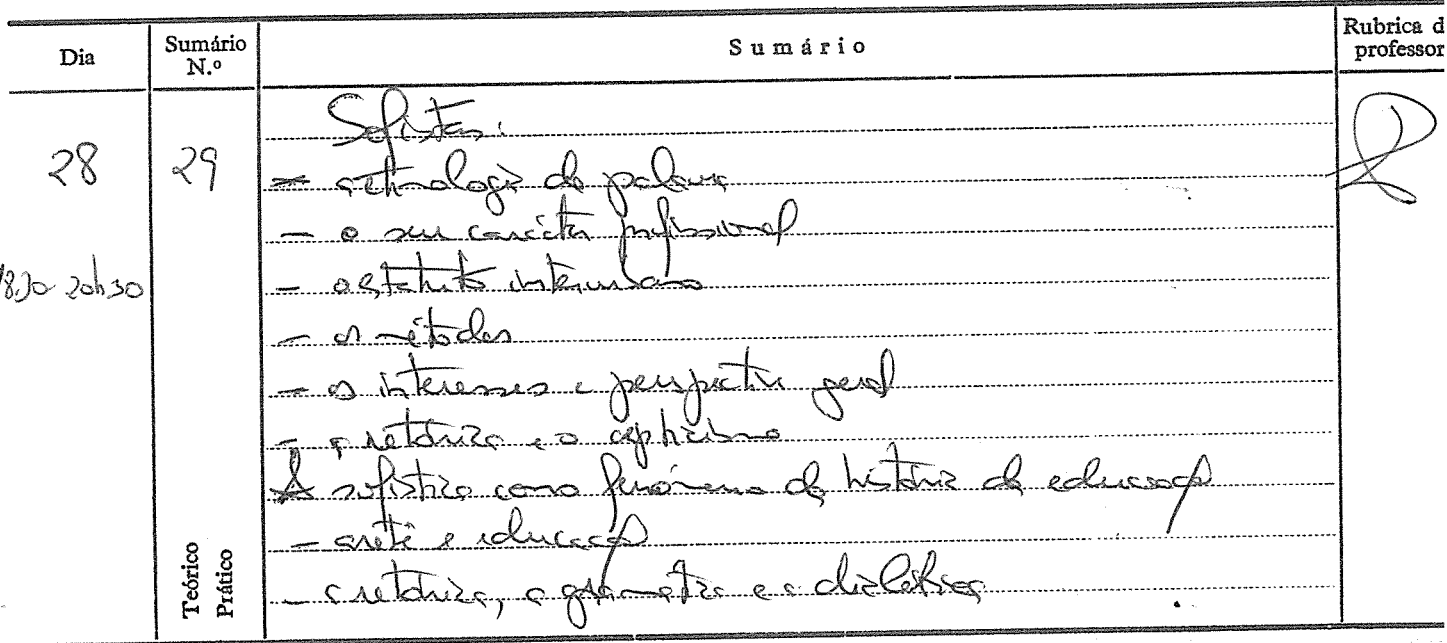 Dia
Sumário N.º
Sumário
Rubrica d
professor
28
29
18.30 20h30
Sofistas:
- a etimologia da palavra
- o seu carácter profissional
- o estatuto interurbano
- os métodos
- os interesses e perspectiva geral
- a retórica e o cepticismo
A sofística como fenómeno da história da educação
- aretê e educação
- a retórica, a gramática e a dialéctica
Teórico
Prático